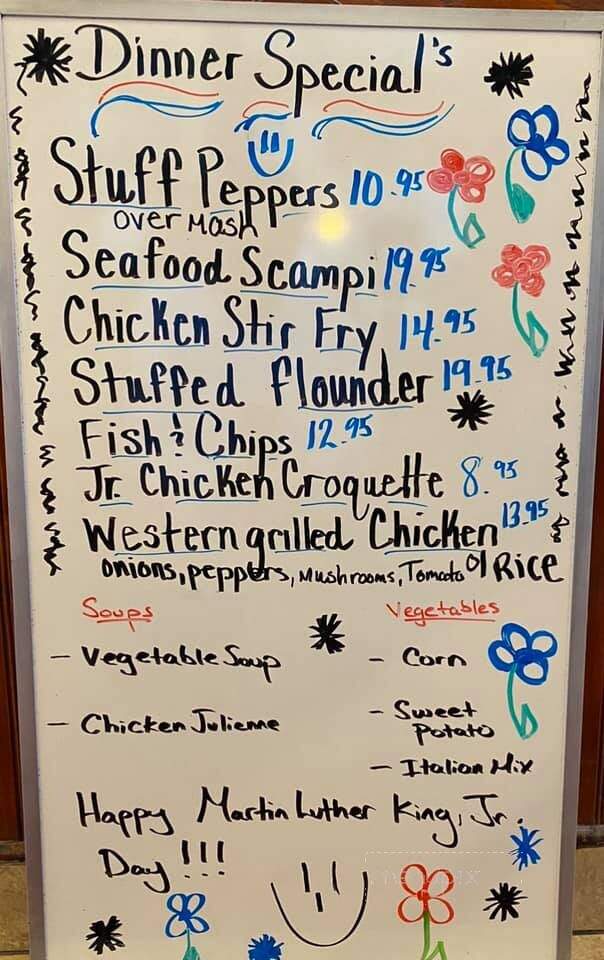 Dinner Special's
Stuff Peppers 10.95
over Mash
Seafood Scampi 19.95
Chicken Stir Fry 14.95
Stuffed flounder 19.95
Fish & Chips 12.95
Jr. Chicken Croquette 8.95
Western grilled Chicken 13.95
onions, peppers, Mushrooms, Tomato o/ Rice
Soups
- Vegetable Soup
- Chicken Julienne
Vegetables
- Corn
- Sweet
Potato
- Italian Mix
Happy Martin Luther King, Jr.
Day!!!